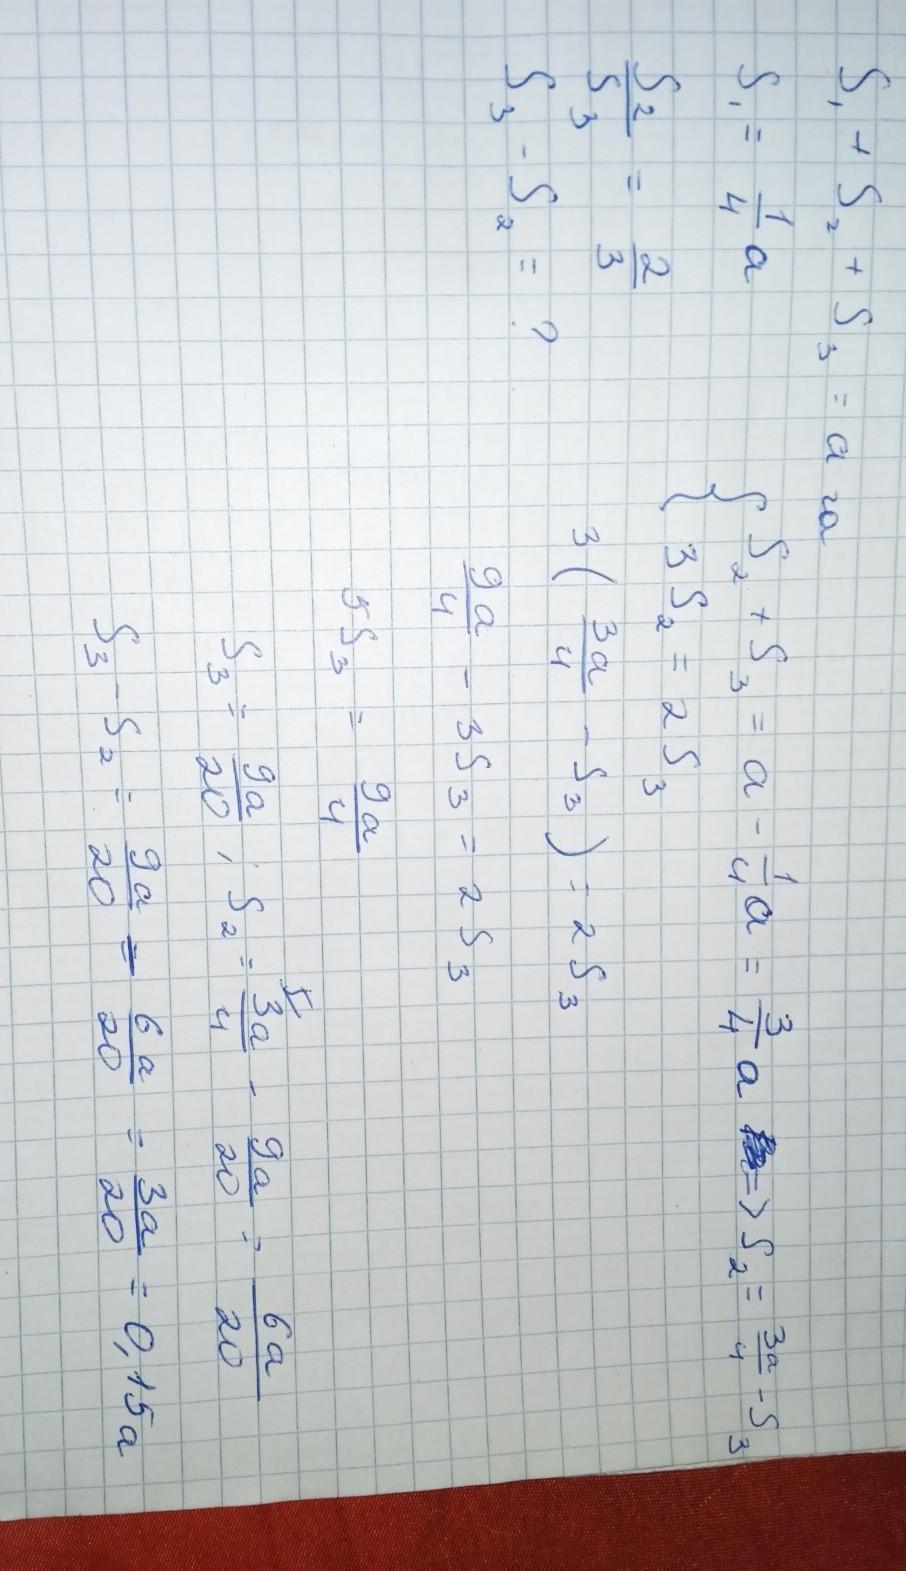 S₁ + S₂ + S₃ = a га
S₁ = 1/4 a
S₂/S₃ = 2/3
S₃ - S₂ = ?
{ S₂ + S₃ = a - 1/4 a = 3/4 a => S₂ = 3a/4 - S₃
3S₂ = 2S₃
3(3a/4 - S₃) = 2S₃
9a/4 - 3S₃ = 2S₃
5S₃ = 9a/4
S₃ = 9a/20 , S₂ = 3a/4 ⁵ - 9a/20 = 6a/20
S₃ - S₂ = 9a/20 - 6a/20 = 3a/20 = 0,15a